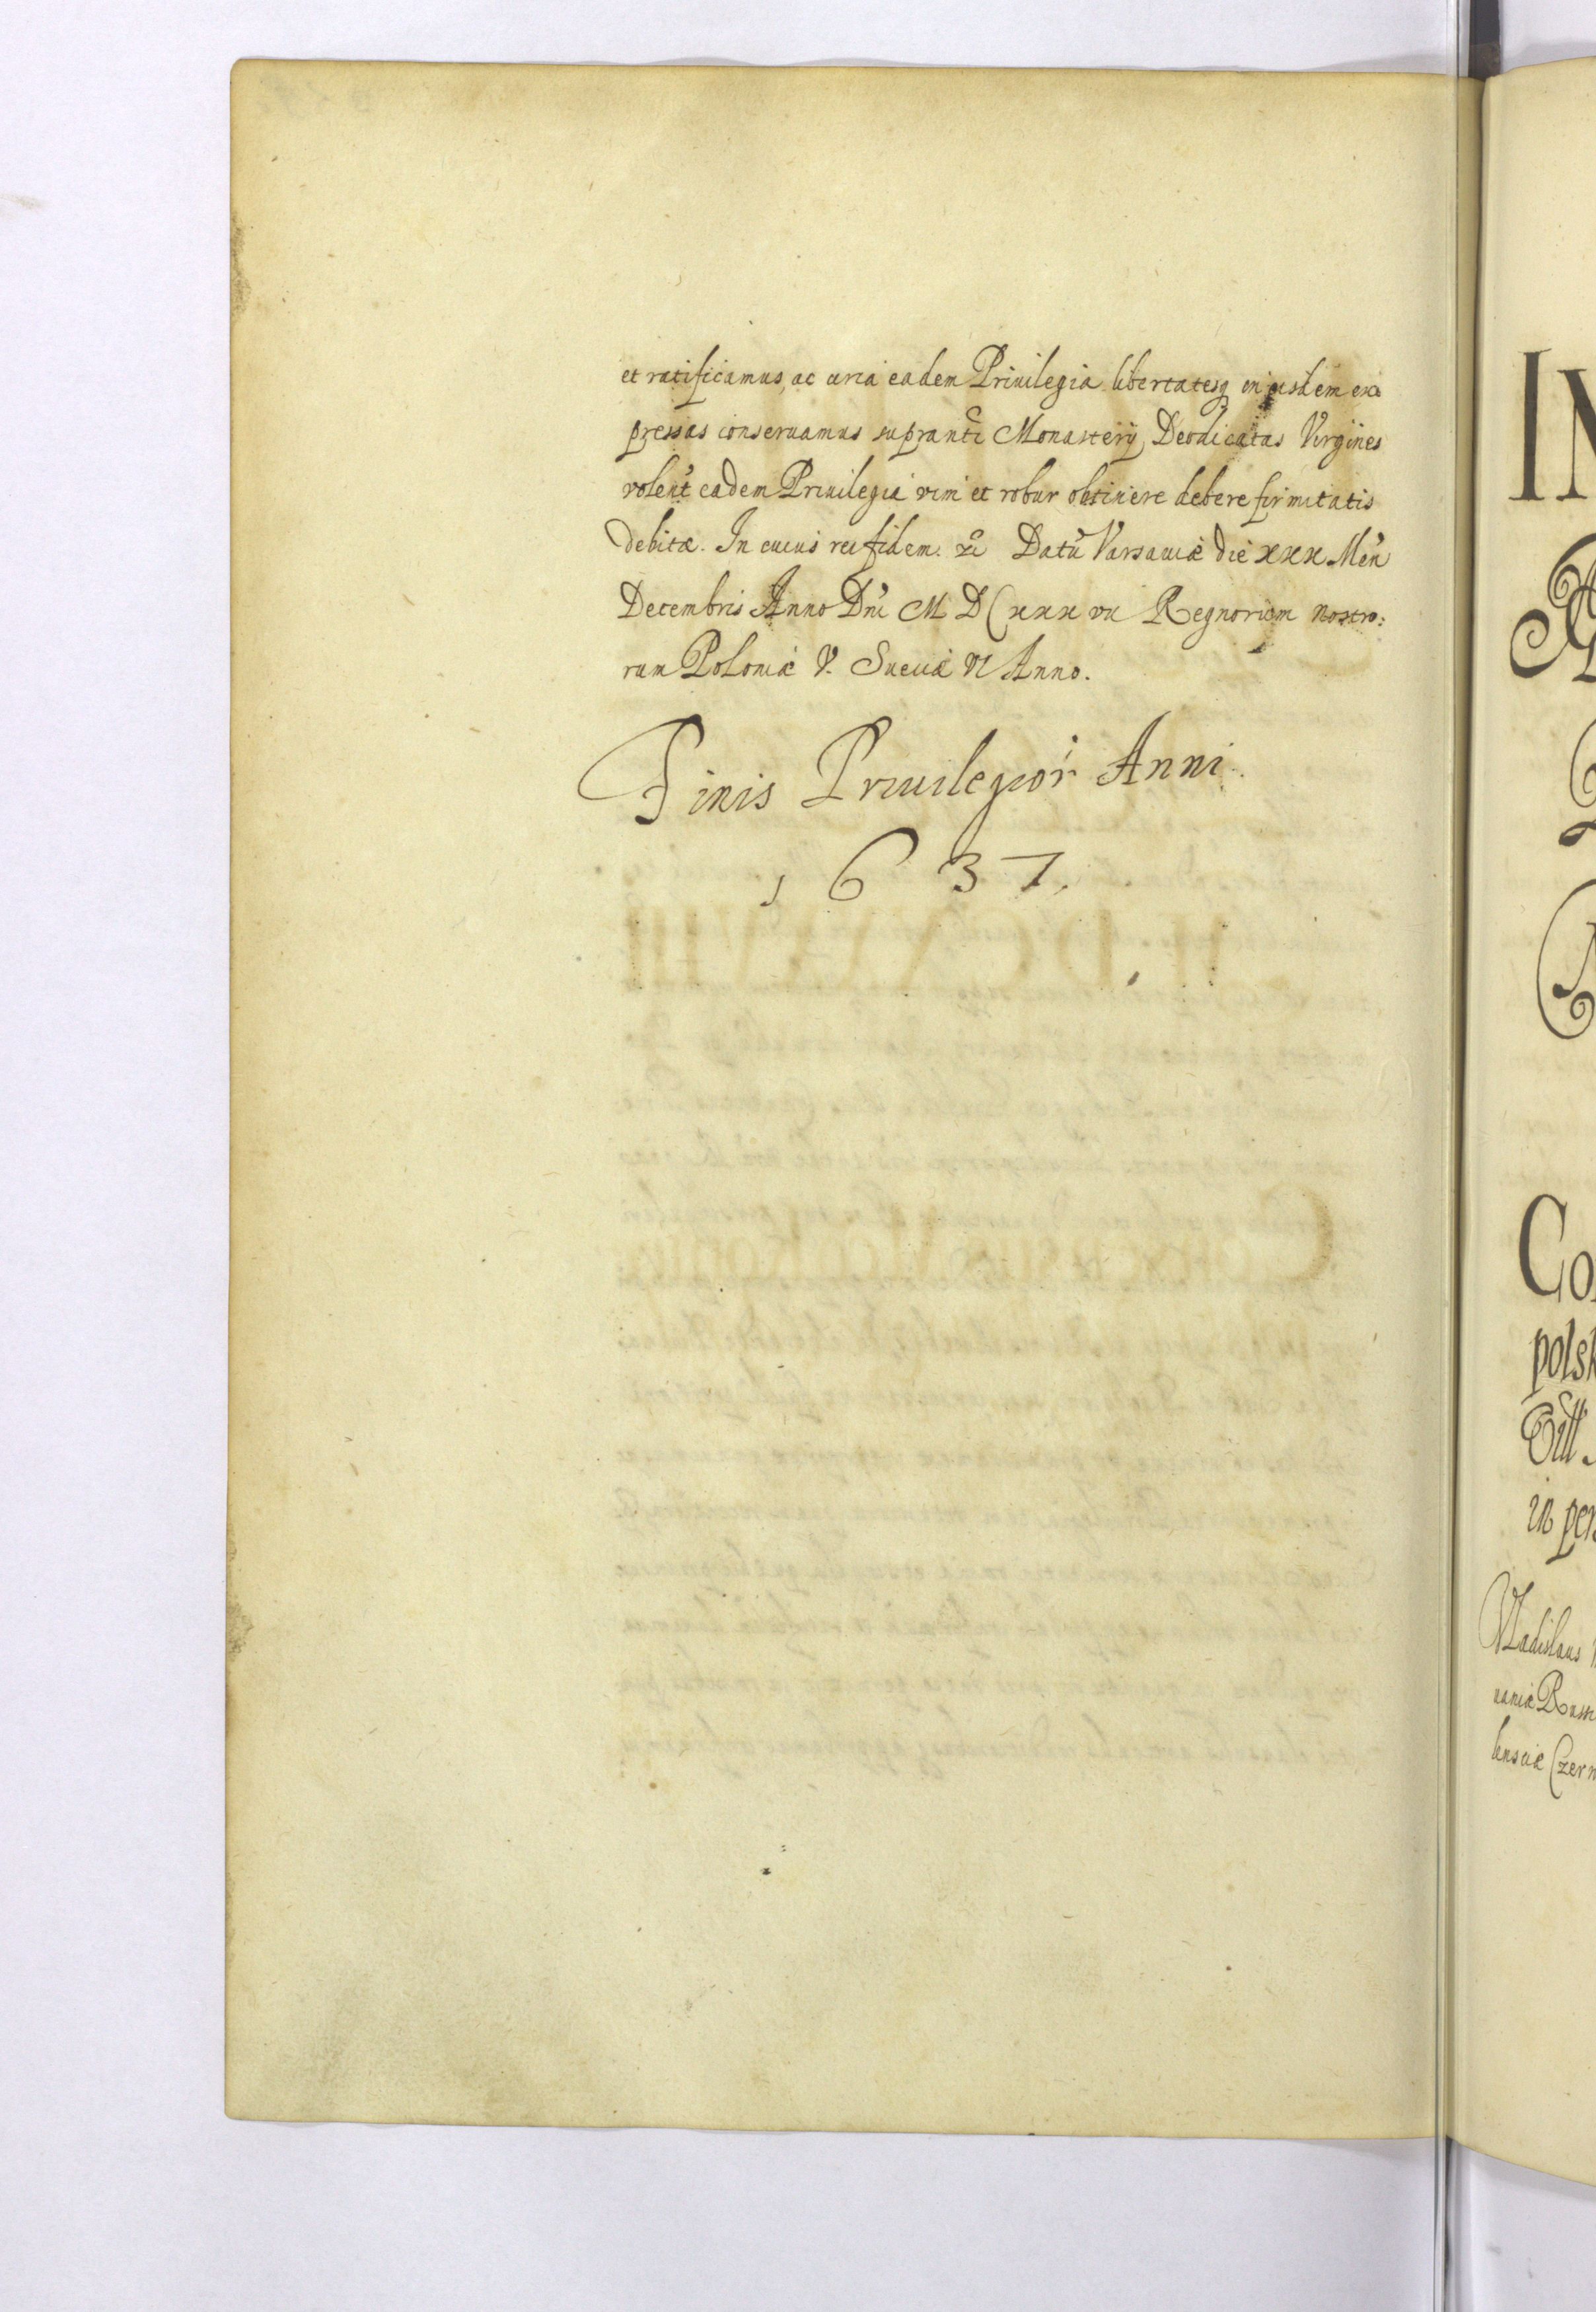 et ratificamus, ac circa eadem Priuilegia libertatesq in eisdem ex
pressas conseruamus supranti Monasterÿ Deodicatas Virgines
volent eadem Priuilegia vim et robur obtinere debere firmitatis
debitæ. In cuius rei fidem. Datũ Varsauiæ die xxx Men
Decembris Anno Dni M D C xxx vii Regnorum nostro:
rum Poloniæ V. Sueciæ VI Anno.
Finis Priuilegior Anni.
1637.
IN
Co
polsk
in per
Vladislaus
uaniæ Russi
lensciæ Czern